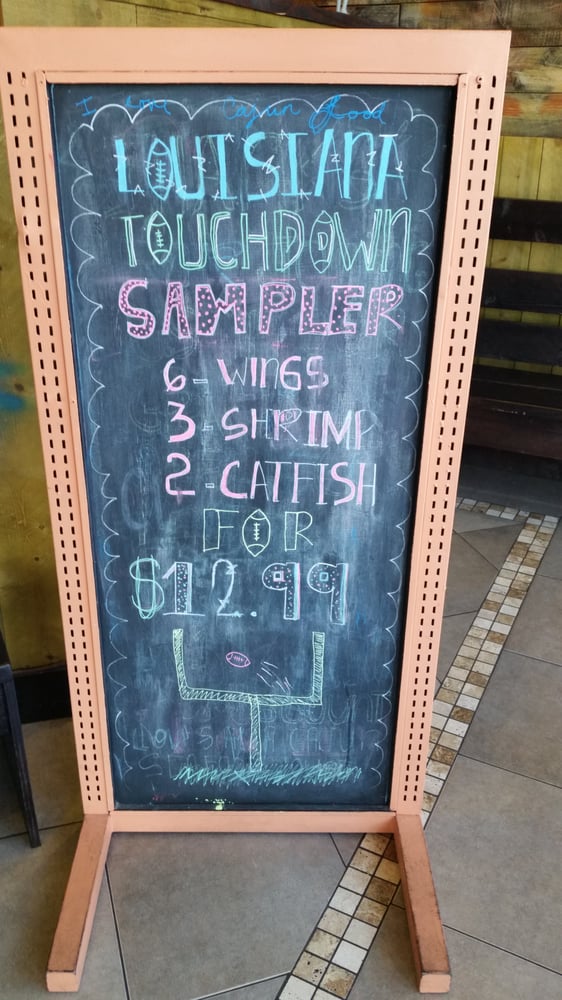 I love Cajun food
LOUISIANA
TOUCHDOWN
SAMPLER
6-WINGS
3-SHRIMP
2-CATFISH
FOR
$12.99